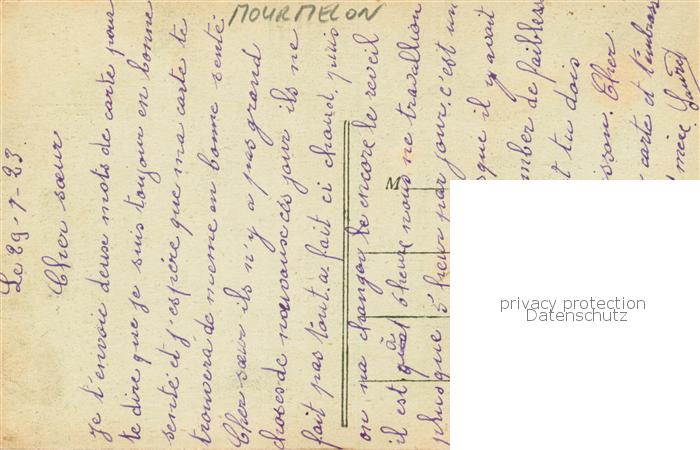 MOURMELON
Le 29-7-23
Cher sœur
Je t'envoie deux mots de carte pour
te dire que je suis toujour en bonne
senté et j'espère que ma carte te
trouvera de meme en bonne senté.
Cher sœur ils n'y a pas grand
choses de nouveause ces jour ils ne
fait pas tout a fait ci chaud, puis
on na changou le encore le reveil
il est à 6 heure nous ne travallion
plusque 5 heur par jour. c'est un
que il y avait
mber de faibless
t tu dois
Cher
carte et t'embrass
mère
M
privacy protection
Datenschutz